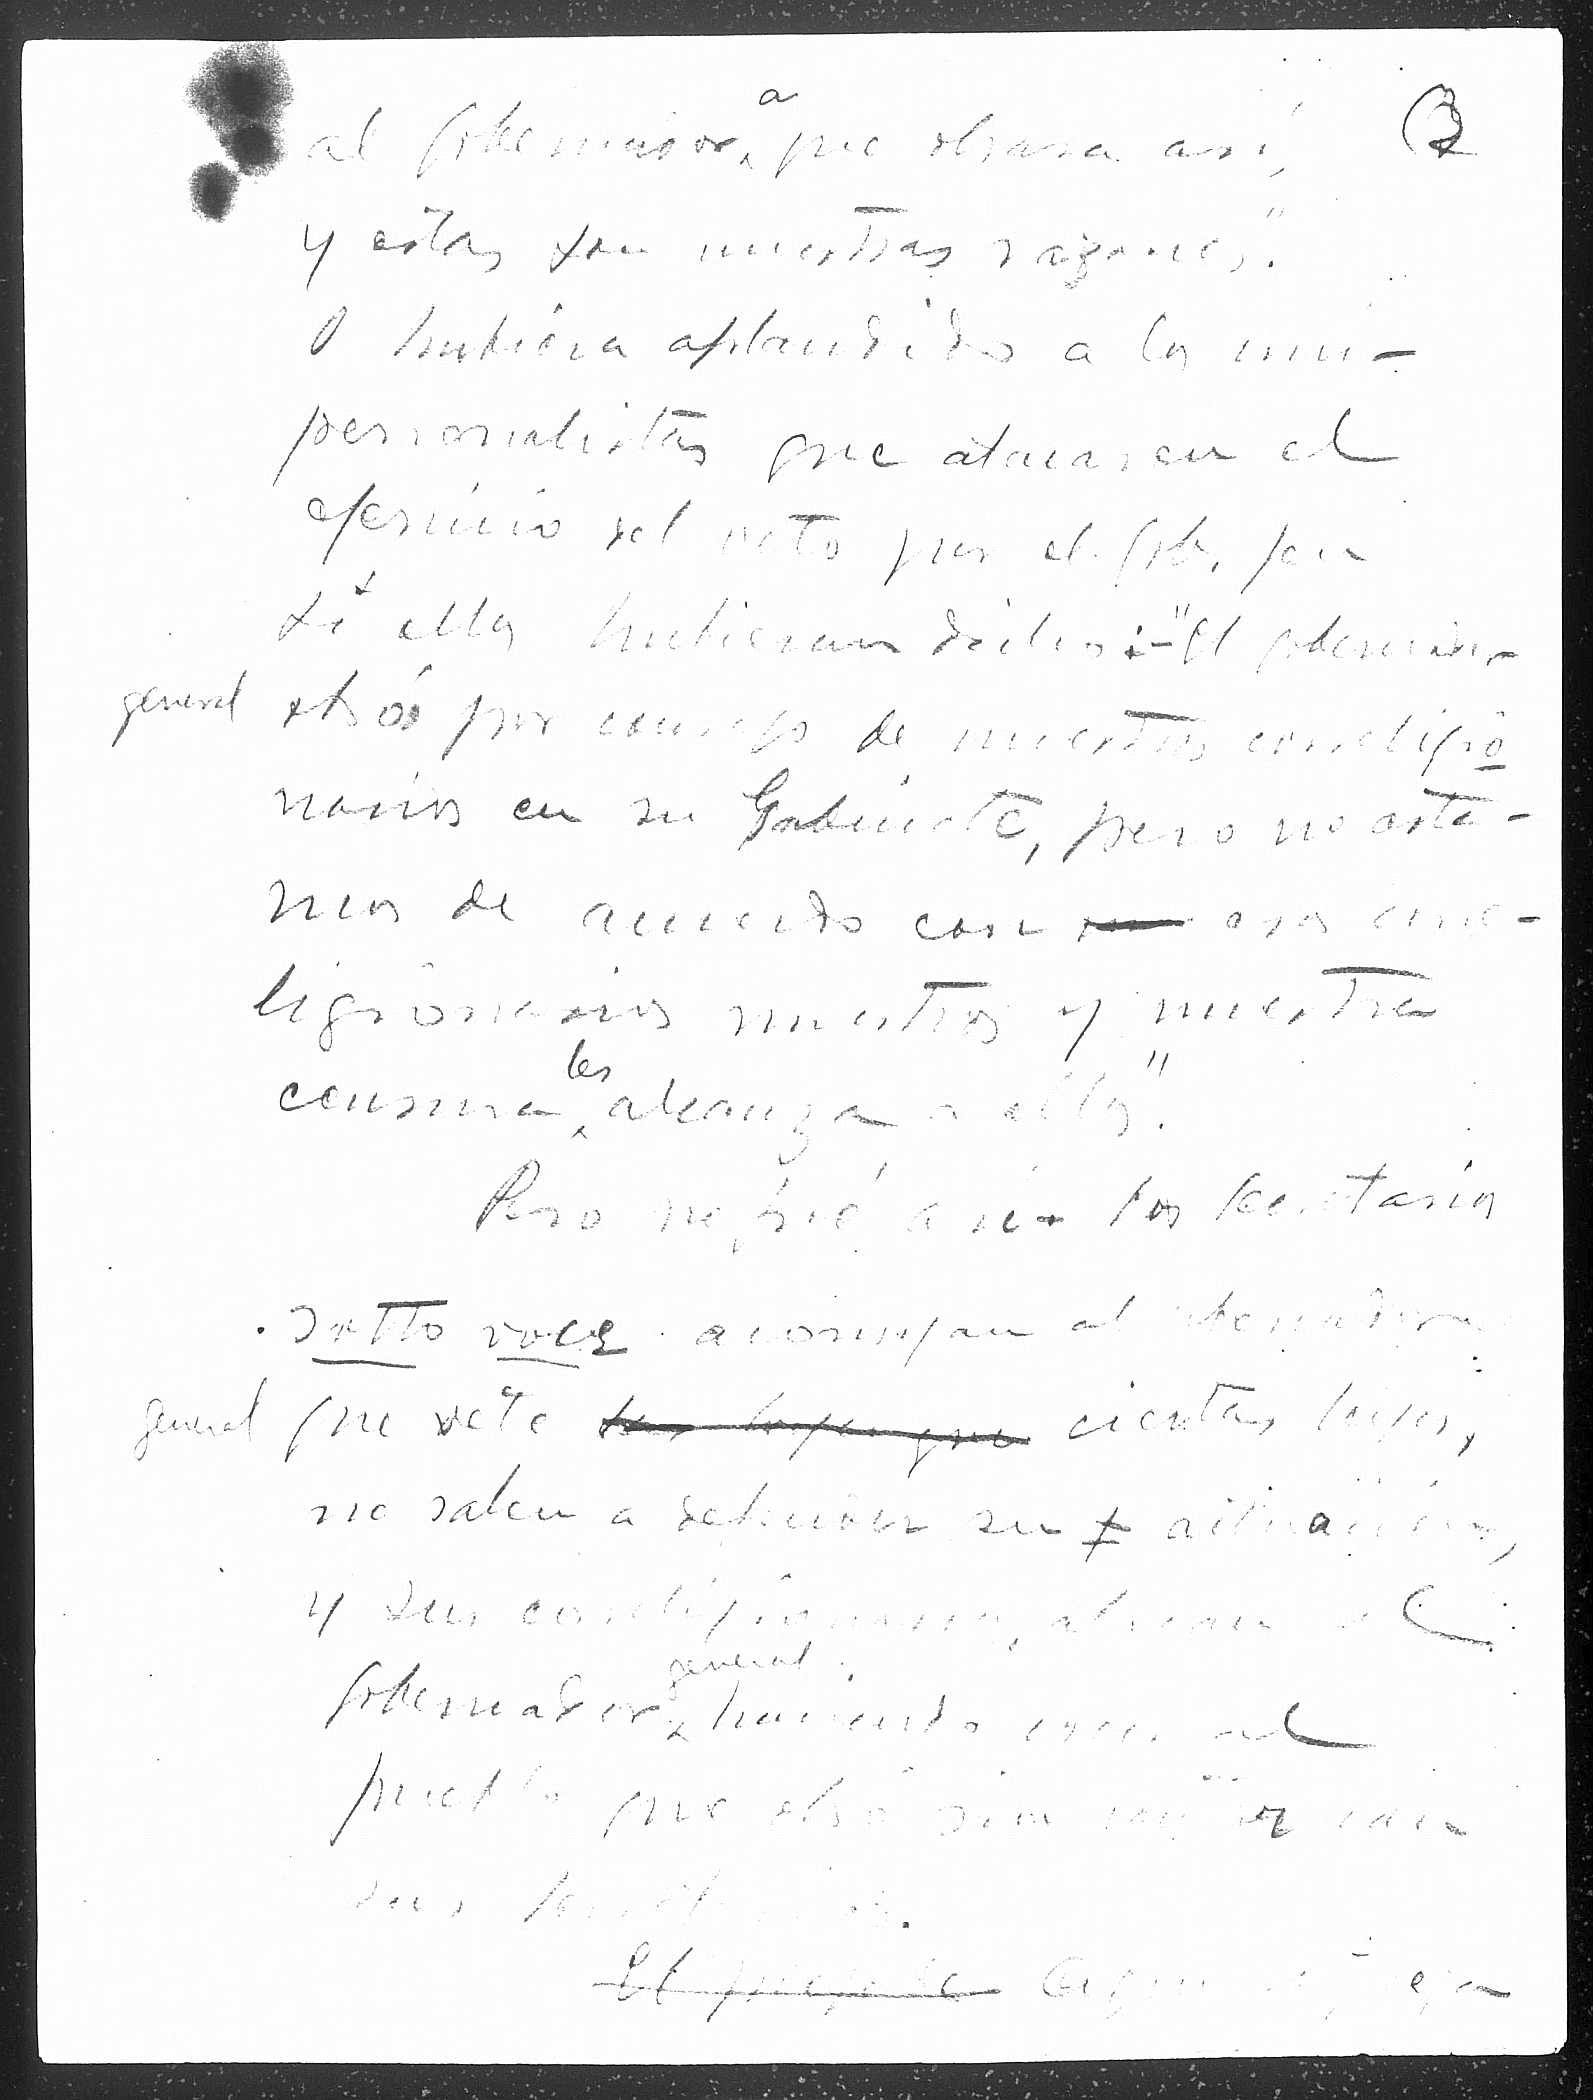 3
al gobernador a que obrara así,
y estas son nuestras razones".
O hubiera aplaudido a los uni-
personalistas que atacaron el
ejercicio del veto por el gob.
si ellos hubieran dicho:- "El gobernador
general obró por consejo de nuestros correligio
narios en su Gabinete, pero no esta-
mos de acuerdo con esos corre-
ligionarios nuestros y nuestra
censura les alcanza a ellos".
Pero no fué así. Los secretarios
sotto voce aconsejan al gobernador
general que vete ciertas leyes,
no salen a defender su actuación,
y sus correligionarios atacan al
gobernador general haciendo creer al
pueblo que obró sin
sus
El